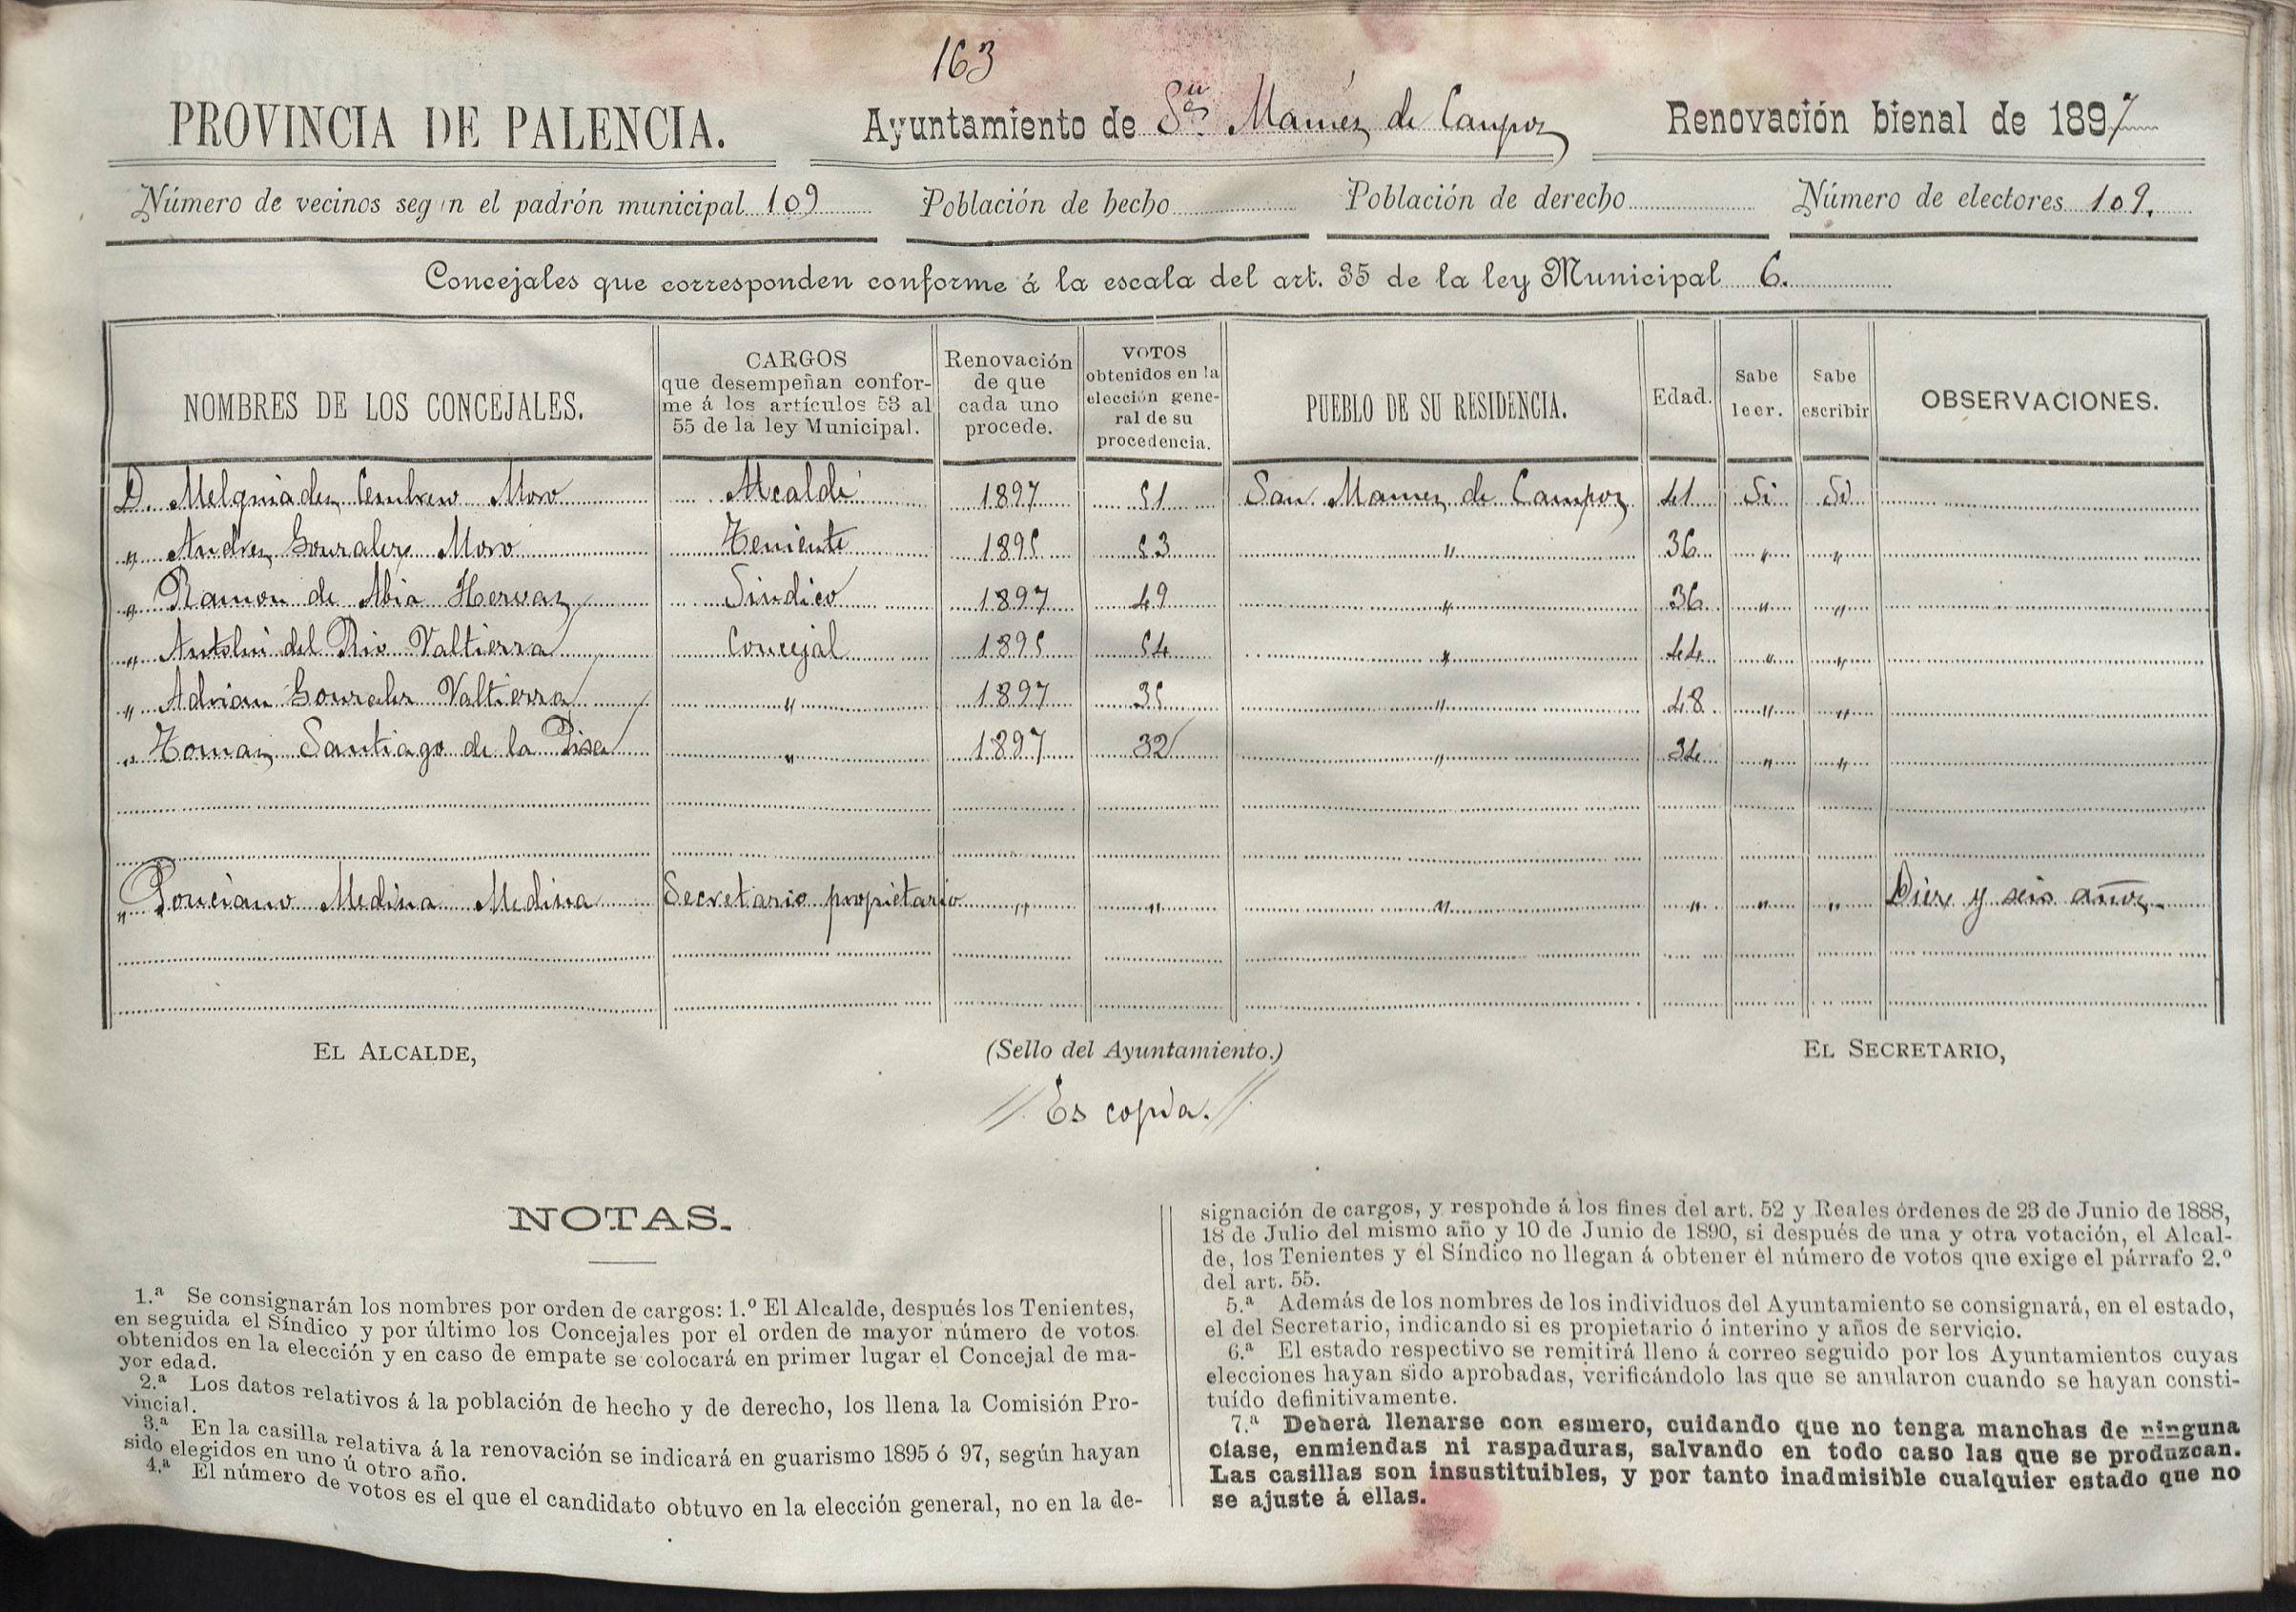 163
PROVINCIA DE PALENCIA. Ayuntamiento de Sn Mamés de Campos Renovación bienal de 1897
Número de vecinos según el padrón municipal 109 Población de hecho Población de derecho Número de electores 109.
Concejales que corresponden conforme á la escala del art. 35 de la ley Municipal 6.
NOMBRES DE LOS CONCEJALES. CARGOS que desempeñan conforme á los artículos 53 al 55 de la ley Municipal. Renovación de que cada uno procede. VOTOS obtenidos en la elección general de su procedencia. PUEBLO DE SU RESIDENCIA. Edad. Sabe leer. Sabe escribir OBSERVACIONES.
D. Melquiades Cembrero Moro Alcalde 1897 51 San Mames de Campos 41 Si Si
" Andres Gonzalez Moro Teniente 1895 53 " 36 " "
" Ramon de Abia Hervas Sindico 1897 49 " 36 " "
" Antolin del Rio Valtierra Concejal 1895 54 " 44 " "
" Adrian Gonzalez Valtierra " 1897 35 " 48 " "
" Tomas Santiago de la Pisa " 1897 32 " 34 " "
" Ponciano Medina Medina Secretario propietario " " " " " " Diez y seis años.
EL ALCALDE, (Sello del Ayuntamiento.) EL SECRETARIO,
// Es copia. //
NOTAS.
1.ª Se consignarán los nombres por orden de cargos: 1.º El Alcalde, después los Tenientes,
en seguida el Síndico y por último los Concejales por el orden de mayor número de votos
obtenidos en la elección y en caso de empate se colocará en primer lugar el Concejal de ma-
yor edad.
2.ª Los datos relativos á la población de hecho y de derecho, los llena la Comisión Pro-
vincial.
3.ª En la casilla relativa á la renovación se indicará en guarismo 1895 ó 97, según hayan
sido elegidos en uno ú otro año.
4.ª El número de votos es el que el candidato obtuvo en la elección general, no en la de-
signación de cargos, y responde á los fines del art. 52 y Reales órdenes de 23 de Junio de 1888,
18 de Julio del mismo año y 10 de Junio de 1890, si después de una y otra votación, el Alcal-
de, los Tenientes y el Síndico no llegan á obtener el número de votos que exige el párrafo 2.º
del art. 55.
5.ª Además de los nombres de los individuos del Ayuntamiento se consignará, en el estado,
el del Secretario, indicando si es propietario ó interino y años de servicio.
6.ª El estado respectivo se remitirá lleno á correo seguido por los Ayuntamientos cuyas
elecciones hayan sido aprobadas, verificándolo las que se anularon cuando se hayan consti-
tuído definitivamente.
7.ª Deberá llenarse con esmero, cuidando que no tenga manchas de ninguna
clase, enmiendas ni raspaduras, salvando en todo caso las que se produzcan.
Las casillas son insustituibles, y por tanto inadmisible cualquier estado que no
se ajuste á ellas.